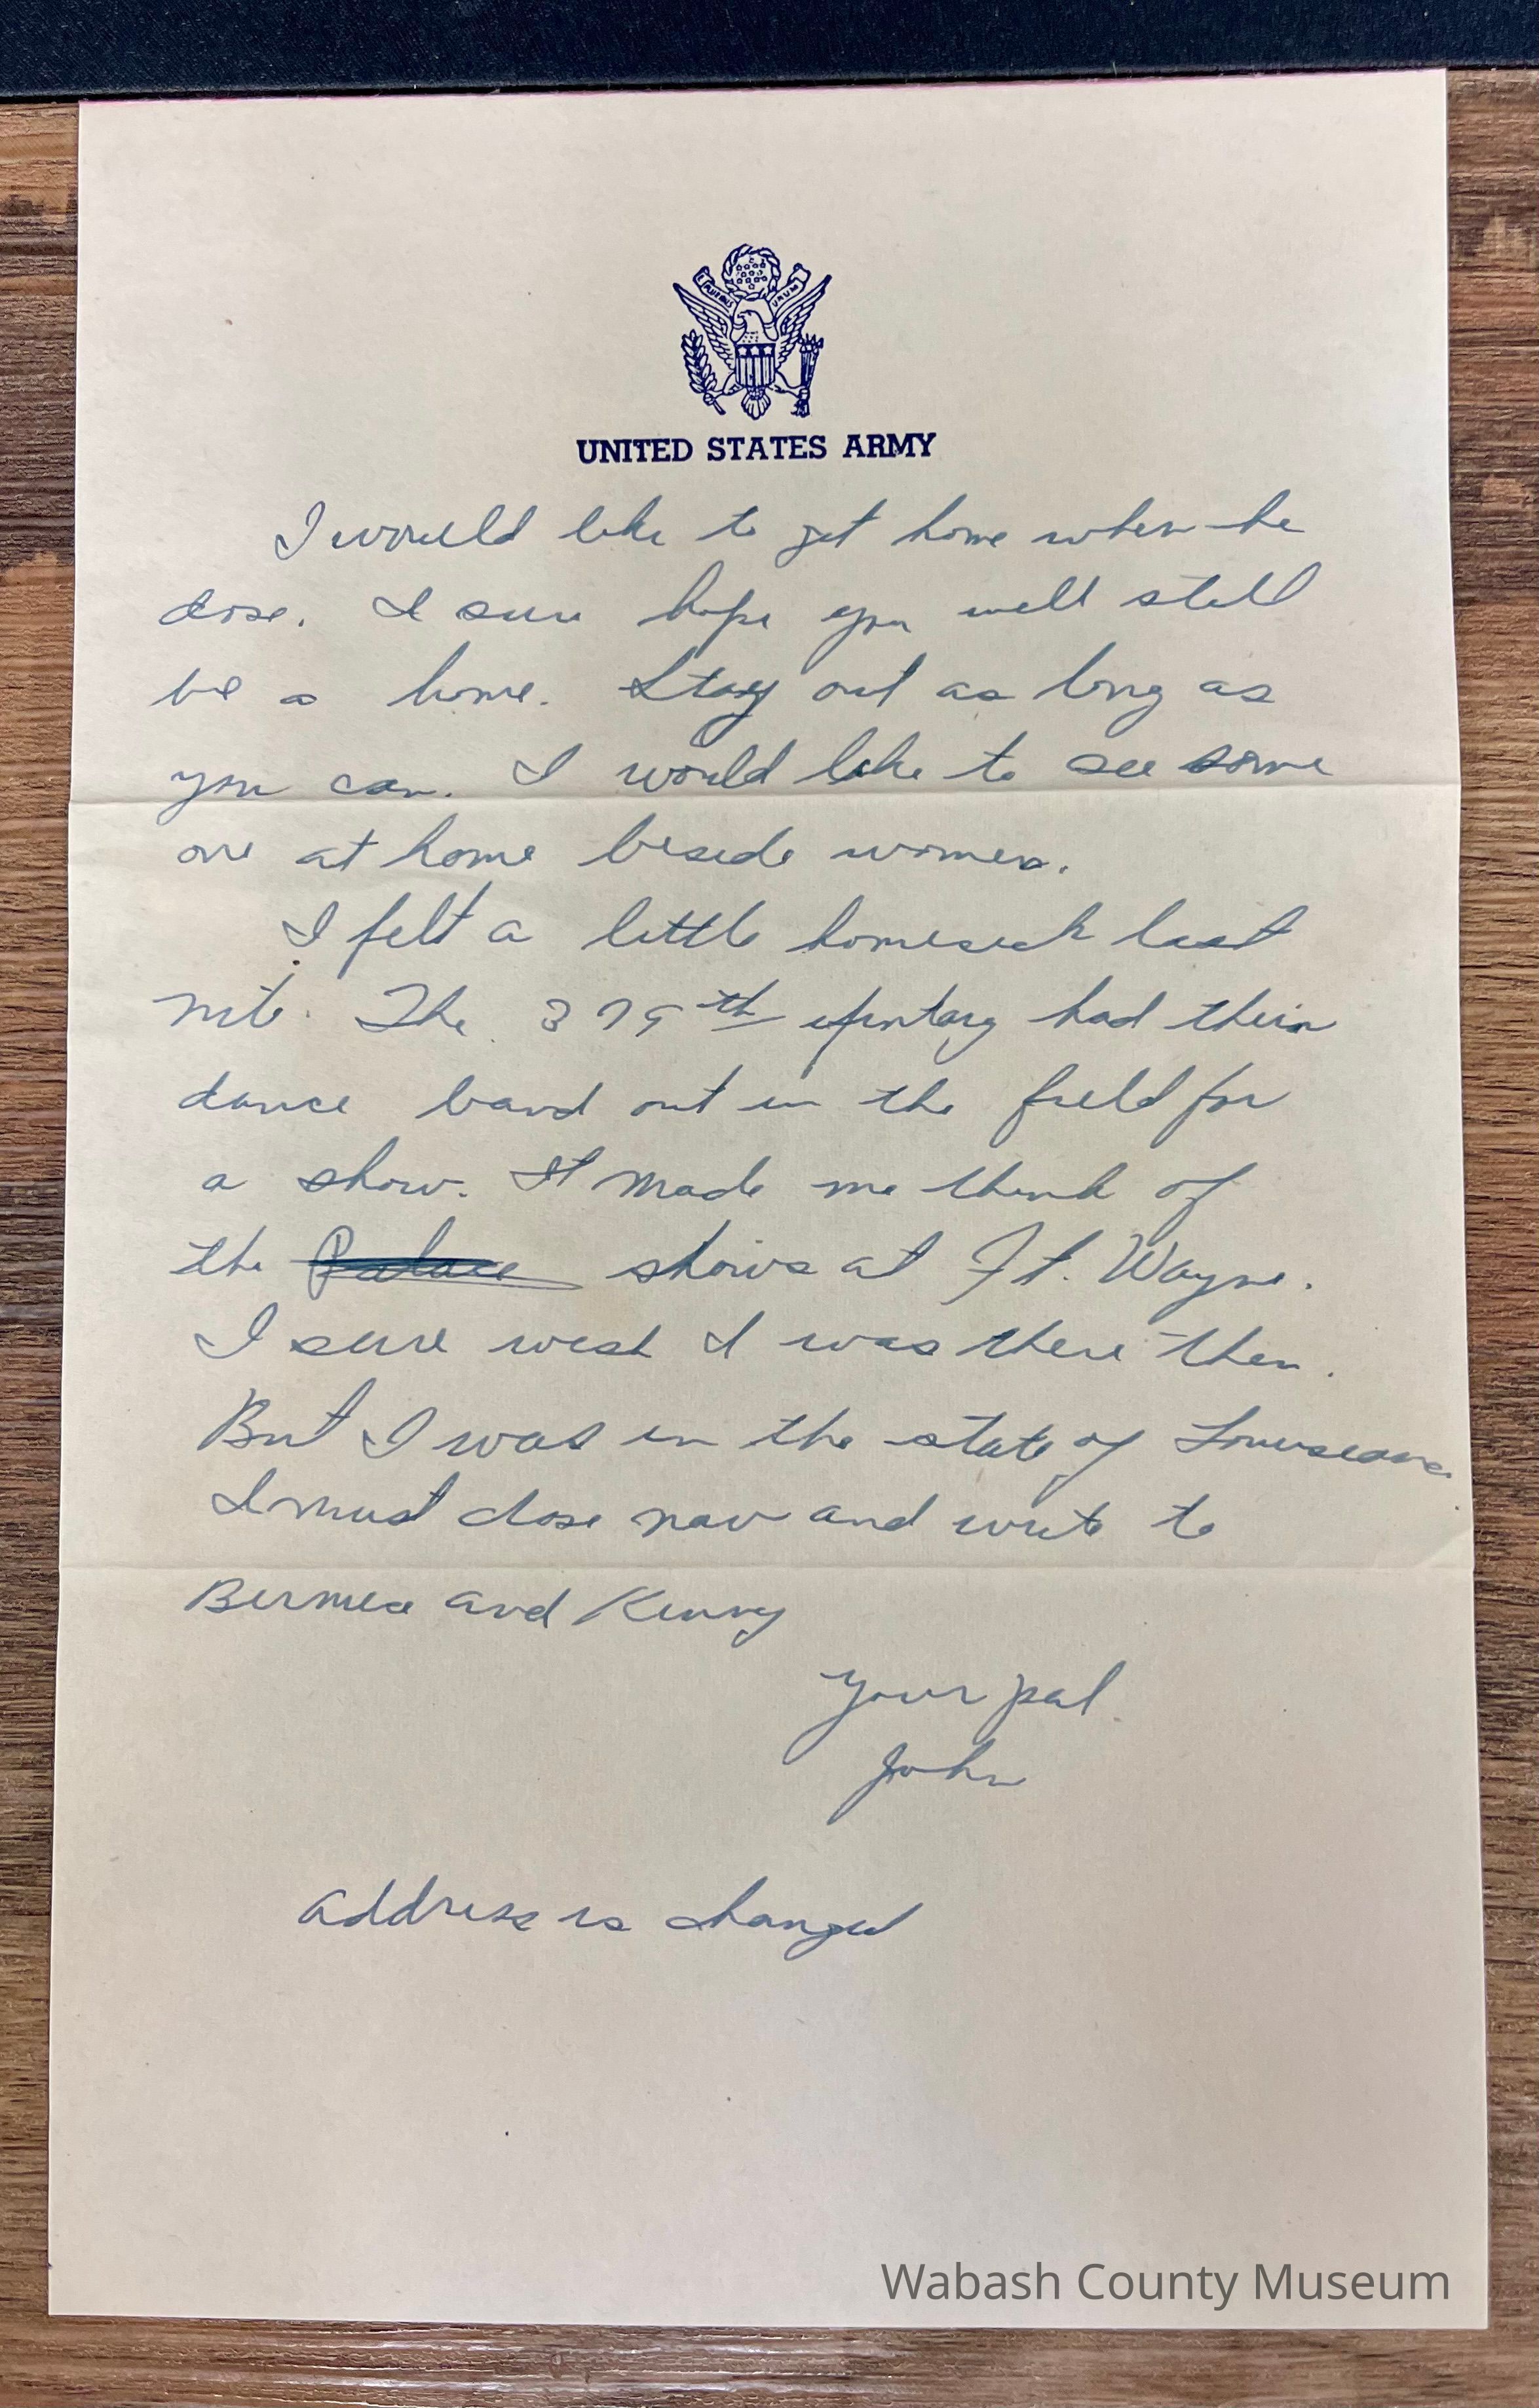 E PLURIBUS UNUM
UNITED STATES ARMY
I would like to get home when he
dose. I sure hope you will still
be a home. Stay out as long as
you can. I would like to see some
one at home beside women.
I felt a little homesick last
nite. The 379th had their
dance band out in the field for
a show. It made me think of
the Palace shows at Ft. Wayne.
I sure wish I was there then.
But I was in the state of Louiseana.
I must close now and write to
and Kenny
Your pal
John
address is changed
Wabash County Museum